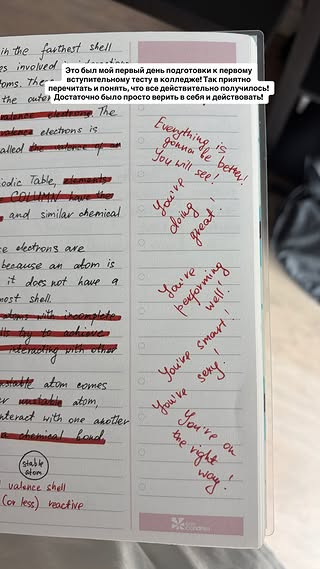 in the farthest shell
Это был мой первый день подготовки к первому
вступительному тесту в колледже! Так приятно
перечитать и понять, что все действительно получилось!
Достаточно было просто верить в себя и действовать!
the outer
valence electrons. The
valence electrons is
called the valence of an
Everything is
gonna be better!
You will see!
You're
doing
great!
iodic Table, elements
COLUMN have the
and similar chemical
e electrons are
because an atom is
it does not have a
most shell.
atoms with incomplete
try to achieve
interacting with other
You're
performing
well!
unstable atom comes
unstable atom,
nteract with one another
a chemical bond,
You're smart!
You're sexy!
You're on
the right
way!
stable
atom
valence shell
(or less) reactive